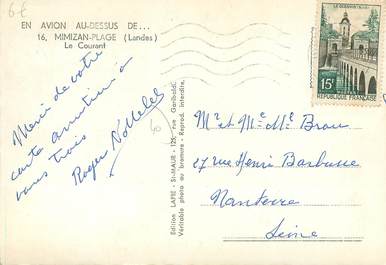 6 €
EN AVION AU-DESSUS DE...
16, MIMIZAN-PLAGE (Landes)
Le Courant
LE QUESNOY (NORD)
15F
REPUBLIQUE FRANÇAISE
Merci de votre
carte amitiés à
vous trois
Roger
Edition LAPIE - St-MAUR - 125, rue Garibaldi.
Véritable photo au bromure - Reprod. interdite.
Mr et Me Mlle Brau
27 rue Henri Barbusse
Nanterre
Seine